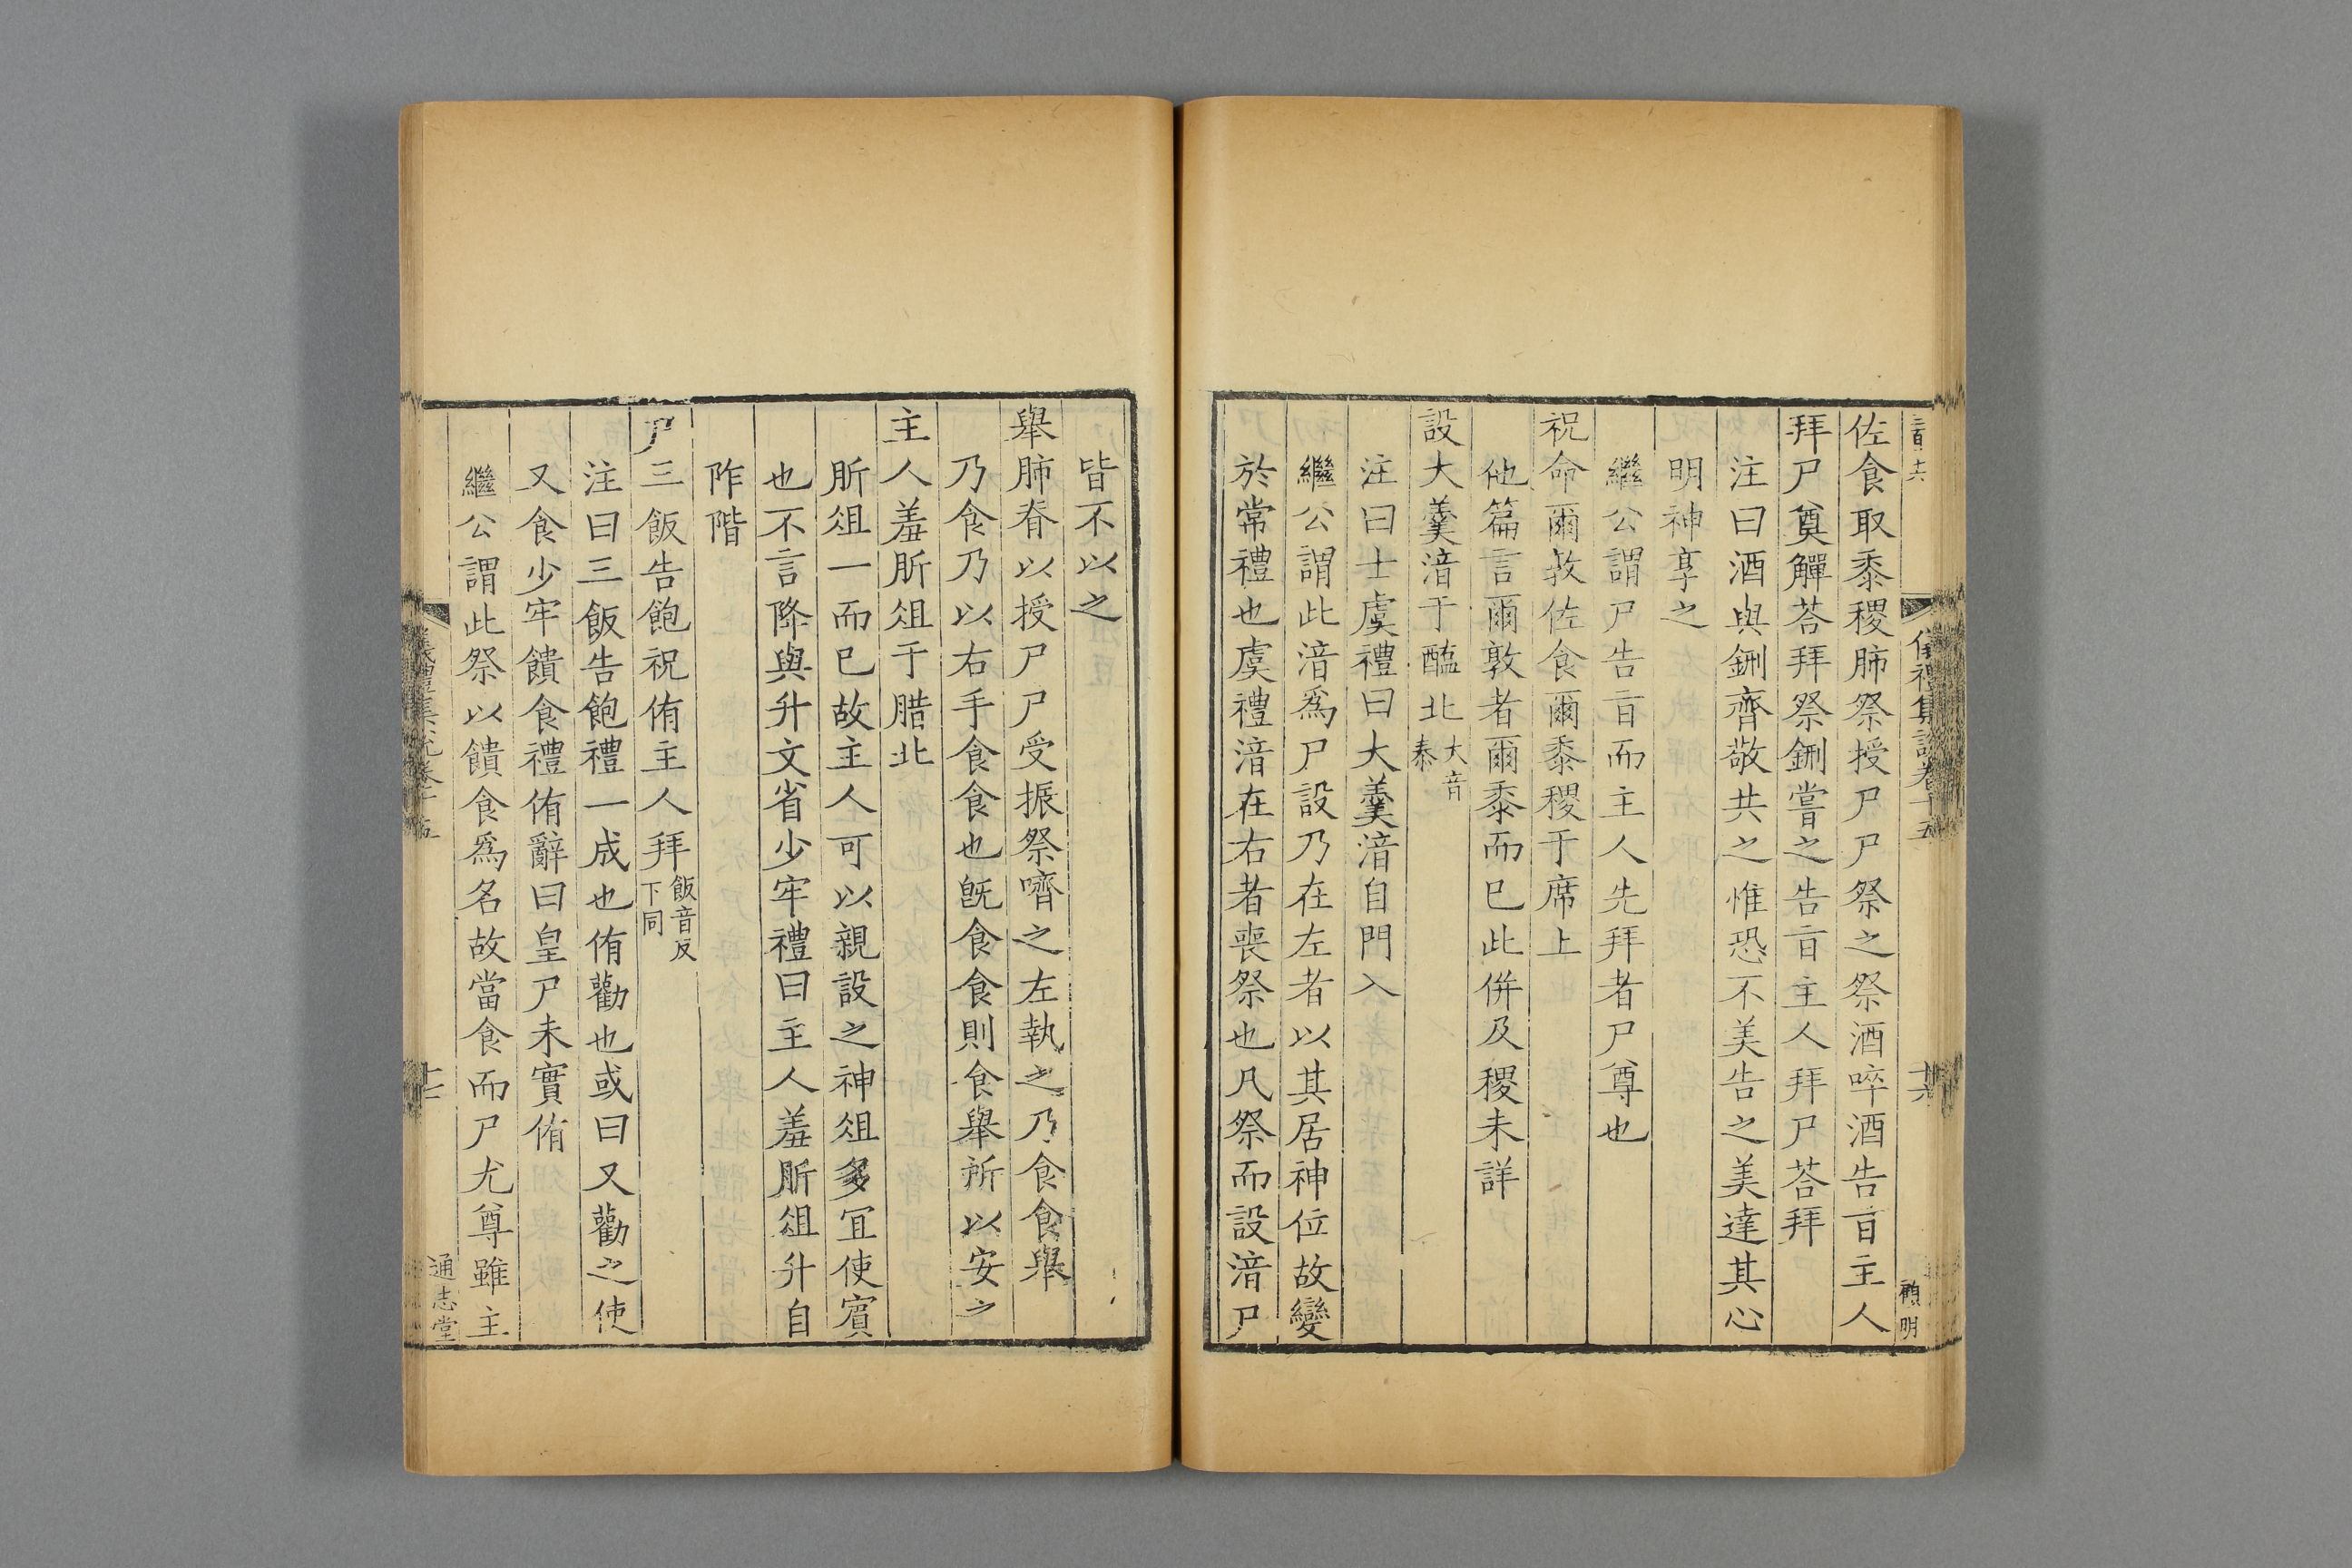 儀禮集說卷十五
十六
顧明
佐食取黍稷肺祭授尸尸祭之祭酒啐酒告㫖主人
拜尸奠觶荅拜祭鉶嘗之告㫖主人拜尸荅拜
注曰酒與鉶齊敬共之惟恐不美告之美達其心
明神享之
繼公謂尸告㫖而主人先拜者尸尊也
祝命爾敦佐食爾黍稷于席上
他篇言爾敦者爾黍而已此併及稷未詳
設大羹湆于醢北大音泰
注曰士虞禮曰大羹湆自門入
繼公謂此湆爲尸設乃在左者以其居神位故變
於常禮也虞禮湆在右者喪祭也凡祭而設湆尸
皆不以之
舉肺脊以授尸尸受振祭嚌之左執之乃食食舉
乃食乃以右手食食也旣食食則食舉所以安之
主人羞肵俎于腊北
肵俎一而已故主人可以親設之神俎多冝使賓
也不言降與升文省少牢禮曰主人羞肵俎升自
阼階
尸三飯告飽祝侑主人拜飯音反下同
注曰三飯告飽禮一成也侑勸也或曰又勸之使
又食少牢饋食禮侑辭曰皇尸未實侑
繼公謂此祭以饋食爲名故當食而尸尤尊雖主
儀禮集說卷十五
通志堂